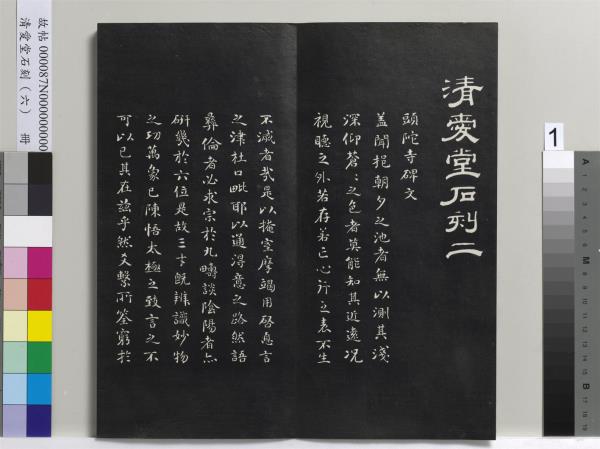 清愛堂石刻二
頭陀寺碑文
蓋聞挹朝夕之池者無以測其淺
深仰蒼〻之色者莫能知其近遠況
視聽之外若存若亡心行之表不生
不滅者哉是以掩室摩竭用啓息言
之津杜口毗耶以通得意之路然語
彝倫者必求宗於九疇談陰陽者亦
研幾於六位是故三才既辨識妙物
之功萬象已陳悟太極之致言之不
可以已其在茲乎然爻繫所筌窮於
故帖 000087N000000000
清愛堂石刻（六） 冊
1
A
M
B